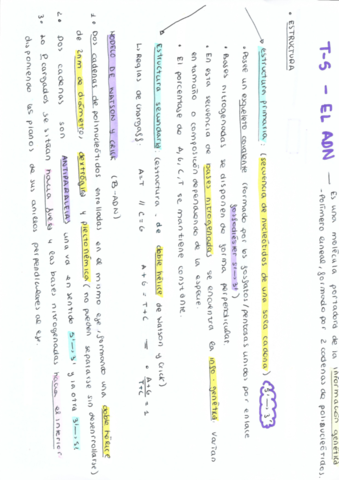 T-5 - EL ADN — Es una molécula portadora de la información genética
- Polímero lineal, formado por 2 cadenas de polinucleótidos.
• ESTRUCTURA
→ estructura primaria: (secuencia de nucleótidos de una sola cadena) (5'→3')
• Posee un esqueleto covalente (formado por os fosfatos/pentosas unidos por enlace
fosfodiéster 5'→3')
• Bases nitrogenadas se disponen de forma perpendicular
• En esta secuencia de bases nitrogenadas se encuentra la info. genética. Varían
en tamaño o composición dependiendo de la especie
• El porcentaje de A, G, C, T se mantiene constante.
→ Estructura secundaria (estructura de doble hélice de Watson y Crick)
↳ Reglas de Chargaff: A=T // C=G A+G = T+C
MODELO DE WATSON Y CRICK (B-ADN)
1. Dos cadenas de polinucleótidos enrolladas en el mismo eje, formando una doble hélice
de 2nm de diámetro, dextrógira y plectonémica (no pueden separarse sin desenrollarse)
2. Dos cadenas son ANTIPARALELAS una va en sentido 5'→3' y la otra 3'→5'
3. Lo P. cargados se sitúan hacia fuera y las bases nitrogenadas hacia el interior
disponiendo los planos de sus anillos perpendiculares al eje.